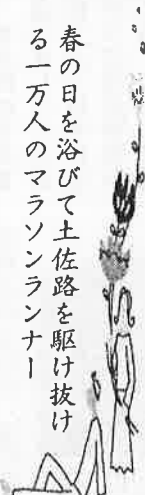 春の日を浴びて土佐路を駆け抜け
る一万人のマラソンランナー